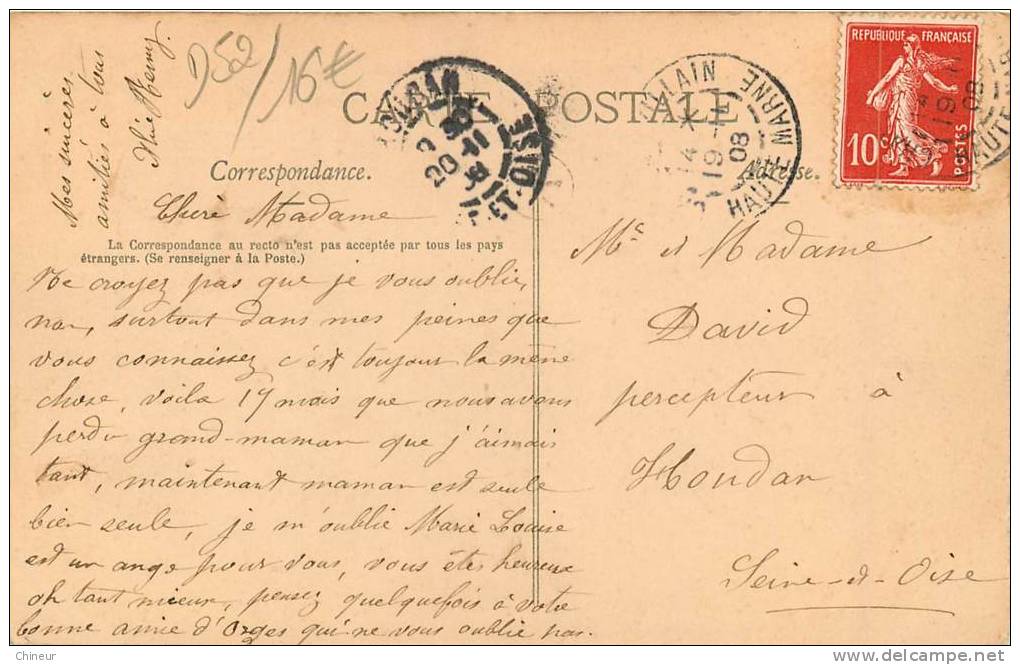 CARTE POSTALE
D52/16€
RÉPUBLIQUE FRANÇAISE
10c
POSTES
HOUDAN
20 -11
08
ET-OISE
ILLAIN
19 -11
08
HAUTE MARNE
Correspondance.
Adresse.
La Correspondance au recto n'est pas acceptée par tous les pays
étrangers. (Se renseigner à la Poste.)
Chère Madame
Ne croyez pas que je vous oublie,
non, surtout dans mes peines que
vous connaissez c'est toujour la mène
chose, voila 19 mois que nous avons
perdu grand-maman que j'aimais
tant, maintenant maman est seule
bien seule, je m'oublie Marie Louise
est un ange pour vous, vous étes heureux
oh tant mieux, pensez quelquefois à votre
bonne amie d'Orges qui ne vous oublie pas.
Mes sincères
amitiés à tous
Henry.
Mr et Madame
David
percepteur à
Houdan
Seine-et-Oise
Chineur
delcampe.net